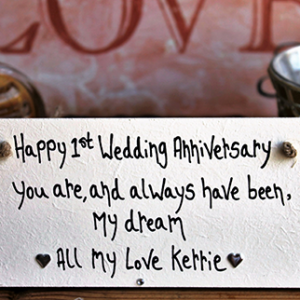 LOVE
Happy 1st Wedding Anniversary
You are, and always have been,
My dream
All My Love Kerrie